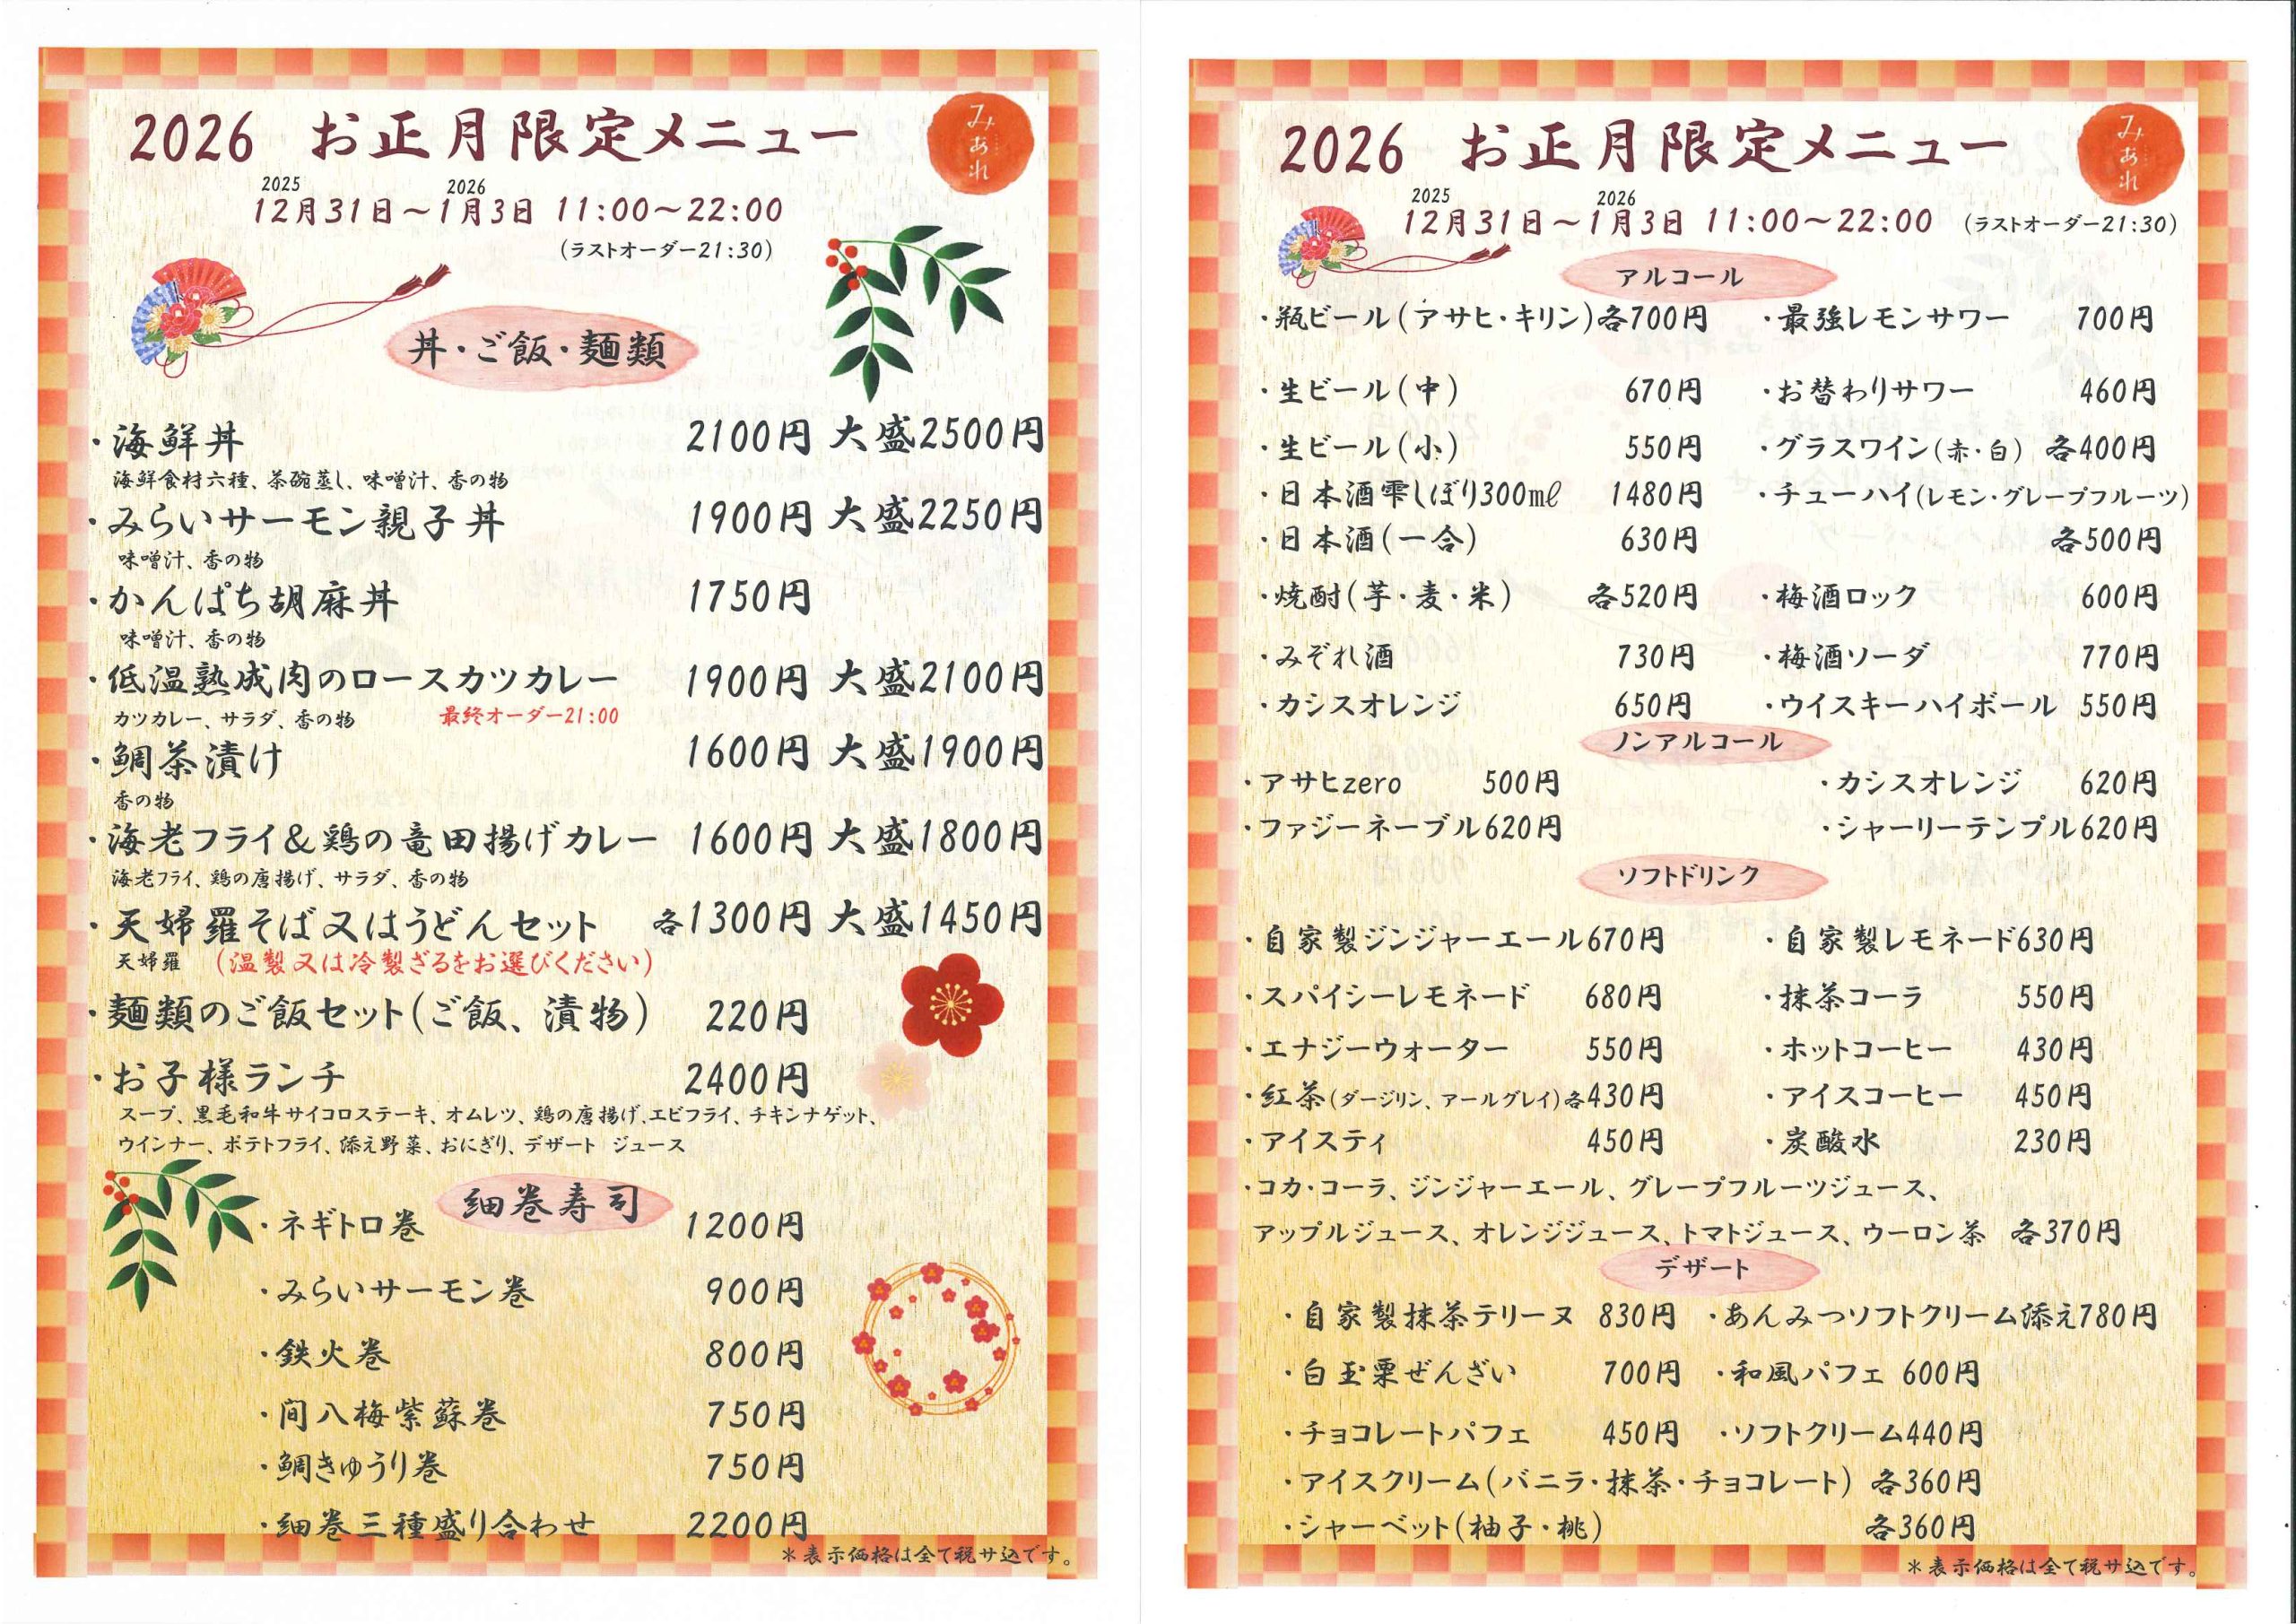 2026 お正月限定メニュー
みあれ
2025 2026
12月31日～1月3日 11:00～22:00
(ラストオーダー21:30)
丼・ご飯・麺類
・海鮮丼 2100円 大盛2500円
海鮮食材六種、茶碗蒸し、味噌汁、香の物
・みらいサーモン親子丼 1900円 大盛2250円
味噌汁、香の物
・かんぱち胡麻丼 1750円
味噌汁、香の物
・低温熟成肉のロースカツカレー 1900円 大盛2100円
カツカレー、サラダ、香の物 最終オーダー21:00
・鯛茶漬け 1600円 大盛1900円
香の物
・海老フライ&鶏の竜田揚げカレー 1600円 大盛1800円
海老フライ、鶏の唐揚げ、サラダ、香の物
・天婦羅そば又はうどんセット 各1300円 大盛1450円
天婦羅 (温製又は冷製ざるをお選びください)
・麺類のご飯セット(ご飯、漬物) 220円
・お子様ランチ 2400円
スープ、黒毛和牛サイコロステーキ、オムレツ、鶏の唐揚げ、エビフライ、チキンナゲット、
ウインナー、ポテトフライ、添え野菜、おにぎり、デザート ジュース
細巻寿司
・ネギトロ巻 1200円
・みらいサーモン巻 900円
・鉄火巻 800円
・間八梅紫蘇巻 750円
・鯛きゅうり巻 750円
・細巻三種盛り合わせ 2200円
＊表示価格は全て税サ込です。
2026 お正月限定メニュー
みあれ
2025 2026
12月31日～1月3日 11:00～22:00 (ラストオーダー21:30)
アルコール
・瓶ビール(アサヒ・キリン)各700円 ・最強レモンサワー 700円
・生ビール(中) 670円 ・お替わりサワー 460円
・生ビール(小) 550円 ・グラスワイン(赤・白) 各400円
・日本酒雫しぼり300㎖ 1480円 ・チューハイ(レモン・グレープフルーツ)
・日本酒(一合) 630円 各500円
・焼酎(芋・麦・米) 各520円 ・梅酒ロック 600円
・みぞれ酒 730円 ・梅酒ソーダ 770円
・カシスオレンジ 650円 ・ウイスキーハイボール 550円
ノンアルコール
・アサヒzero 500円 ・カシスオレンジ 620円
・ファジーネーブル620円 ・シャーリーテンプル620円
ソフトドリンク
・自家製ジンジャーエール670円 ・自家製レモネード630円
・スパイシーレモネード 680円 ・抹茶コーラ 550円
・エナジーウォーター 550円 ・ホットコーヒー 430円
・紅茶(ダージリン、アールグレイ)各430円 ・アイスコーヒー 450円
・アイスティ 450円 ・炭酸水 230円
・コカ・コーラ、ジンジャーエール、グレープフルーツジュース、
アップルジュース、オレンジジュース、トマトジュース、ウーロン茶 各370円
デザート
・自家製抹茶テリーヌ 830円 ・あんみつソフトクリーム添え780円
・白玉栗ぜんざい 700円 ・和風パフェ 600円
・チョコレートパフェ 450円 ・ソフトクリーム440円
・アイスクリーム(バニラ・抹茶・チョコレート) 各360円
・シャーベット(柚子・桃) 各360円
＊表示価格は全て税サ込です。